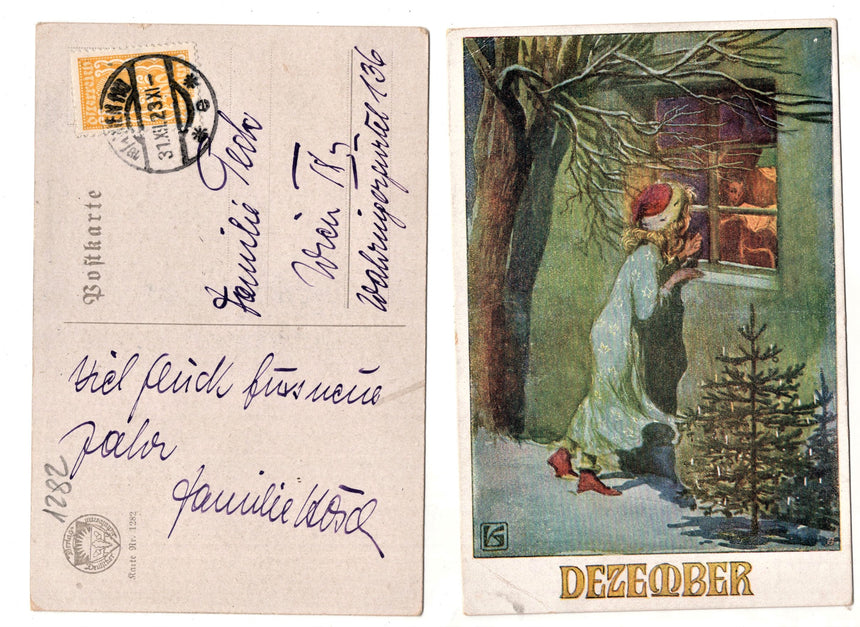 Österreich
WIEN
31.XII.23 XI-
* e *
Postkarte
Familie
Wien
Währingergürtel 136
Viel Glück fürs neue
Jahr
Familie Kösch
1282
Karte Nr. 1282
Deutsche
KS
DEZEMBER